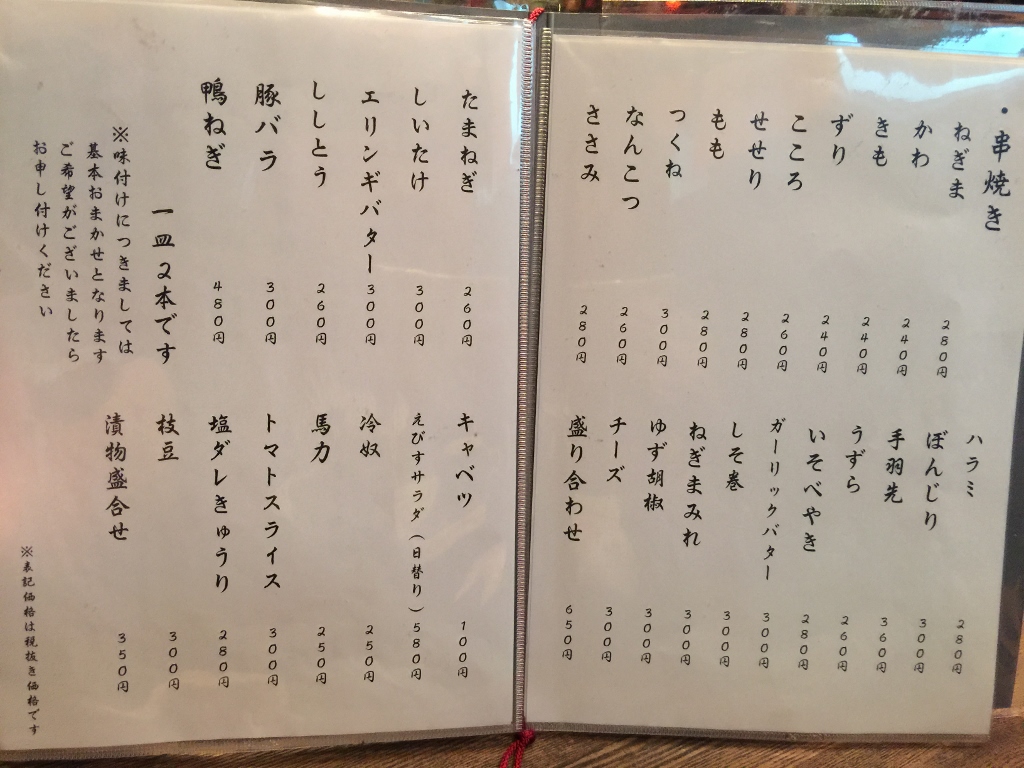 ・串焼き
ねぎま 280円
かわ 240円
きも 240円
ずり 240円
こころ 260円
せせり 280円
もも 280円
つくね 300円
なんこつ 260円
ささみ 280円
ハラミ 280円
ぼんじり 300円
手羽先 360円
うずら 260円
いそべやき 280円
ガーリックバター 300円
しそ巻 300円
ねぎまみれ 300円
ゆず胡椒 300円
チーズ 300円
盛り合わせ 650円
たまねぎ 260円
しいたけ 300円
エリンギバター 300円
ししとう 260円
豚バラ 300円
鴨ねぎ 480円
一皿2本です
※味付けにつきましては
基本おまかせとなります
ご希望がございましたら
お申し付けください
キャベツ 100円
えびすサラダ(日替り) 580円
冷奴 250円
馬力 250円
トマトスライス 300円
塩ダレきゅうり 280円
枝豆 300円
漬物盛合せ 350円
※表記価格は税抜き価格です